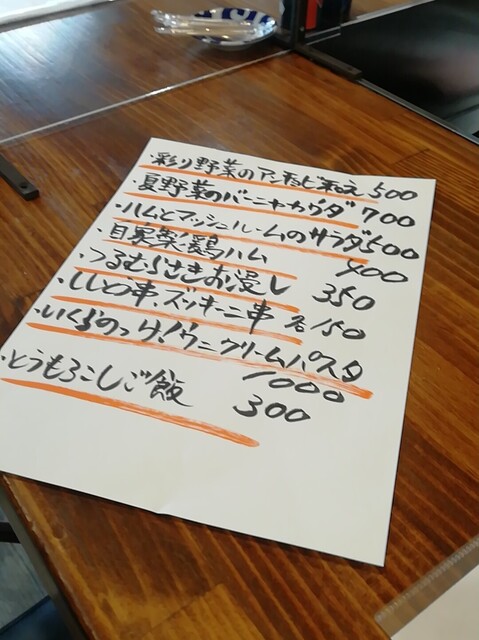 ・彩り野菜のアンチョビ和え 500
・夏野菜のバーニャカウダ 700
・ハムとマッシュルームのサラダ 500
・自家製鶏ハム 400
・つるむらさきお浸し 350
・ししとう串、ズッキーニ串 各150
・いくらのっけ!ウニクリームパスタ
1000
・とうもろこしご飯 300